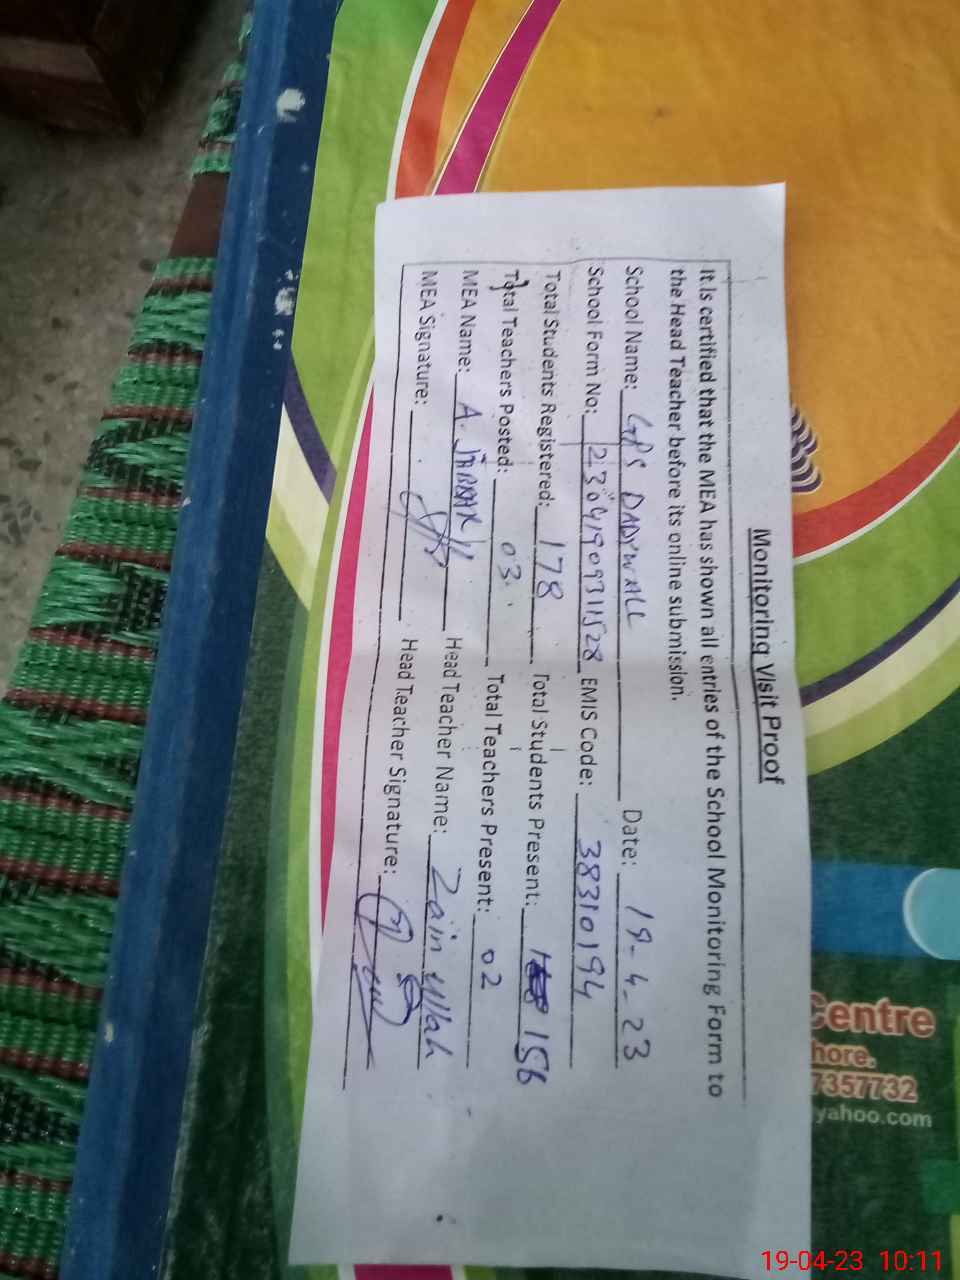 Monitoring Visit Proof
It is certified that the MEA has shown all entries of the School Monitoring Form to
the Head Teacher before its online submission.
School Name: GPS DADYWALL Date: 19-4-23
School Form No: 2304190931528 EMIS Code: 38310194
Total Students Registered: 178 Total Students Present: 156
Total Teachers Posted: 03 Total Teachers Present: 02
MEA Name: A. JABBAR Head Teacher Name: Zain ullah
MEA Signature: Head Teacher Signature:
Centre
hore.
7357732
yahoo.com
19-04-23 10:11